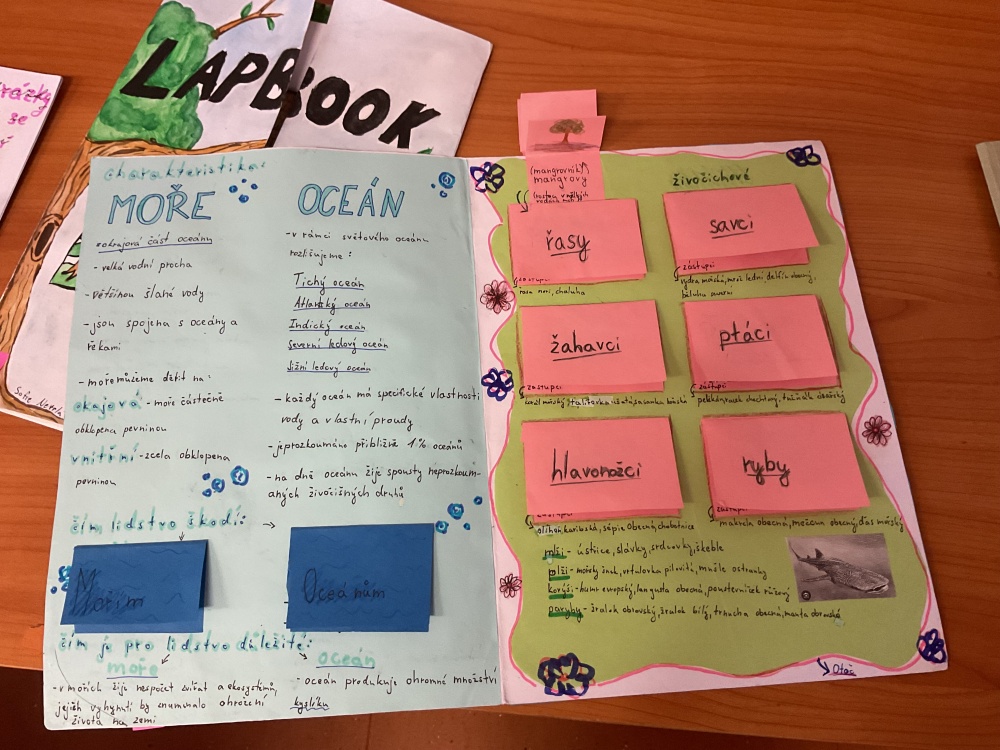 LAPBOOK
rázky
se
charakteristika:
MOŘE
okrajová část oceánu
- velká vodní plocha
- většinou slané vody
- jsou spojena s oceány a
řekami
- moře můžeme dělit na:
okajová - moře částečně
obklopena pevninou
vnitřní - zcela obklopena
pevninou
OCEÁN
- v rámci světového oceánu
rozlišujeme:
Tichý oceán
Atlantský oceán
Indický oceán
Severní ledový oceán
Jižní ledový oceán
- každý oceán má specifické vlastnosti
vody a vlastní proudy
- je prozkoumáno přibližně 1% oceánů
- na dně oceánu žije spousty neprozkoum-
aných živočišných druhů
čím lidstvo škodí:
Mořím
Oceánům
čím je pro lidstvo důležité:
moře
- v mořích žije nespočet zvířat a ekosystémů,
jejich vyhynutí by znamenalo ohrožení
života na zemi
oceán
- oceán produkuje ohromné množství
kyslíku
(mangrovník)
mangrovy
živočichové
řasy
řasa nori, chaluha
savci
zástupci
vydra mořská, mrož lední, delfín obecný,
žahavci
zástupci
talířovka ušatá, sasanka
ptáci
zástupci
hlavonožci
olihoň karibská, sépie obecná, chobotnice
ryby
makrela obecná, mečoun obecný, ďas mořský
mlži - ústřice, slávky, srdcovky, škeble
plži - mořský šnek, vrtulovka pilovitá, mušle ostranky
korýši - humr evropský, langusta obecná, poustevníček růžový
paryby - žralok obrovský, žralok bílý, trnucha obecná, manta obrovská
Otoč